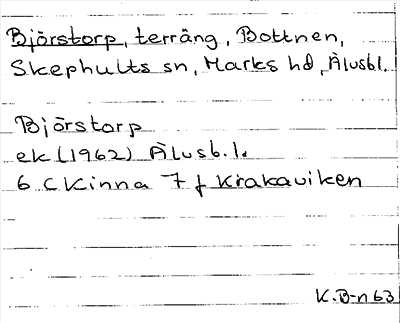 Björstorp, terräng, Bottnen,
Skephults sn, Marks hd, Älvsbl.
Björstorp
ek (1962) Älvsb. l.
6 C Kinna 7 f Krakaviken
K.B-n 63